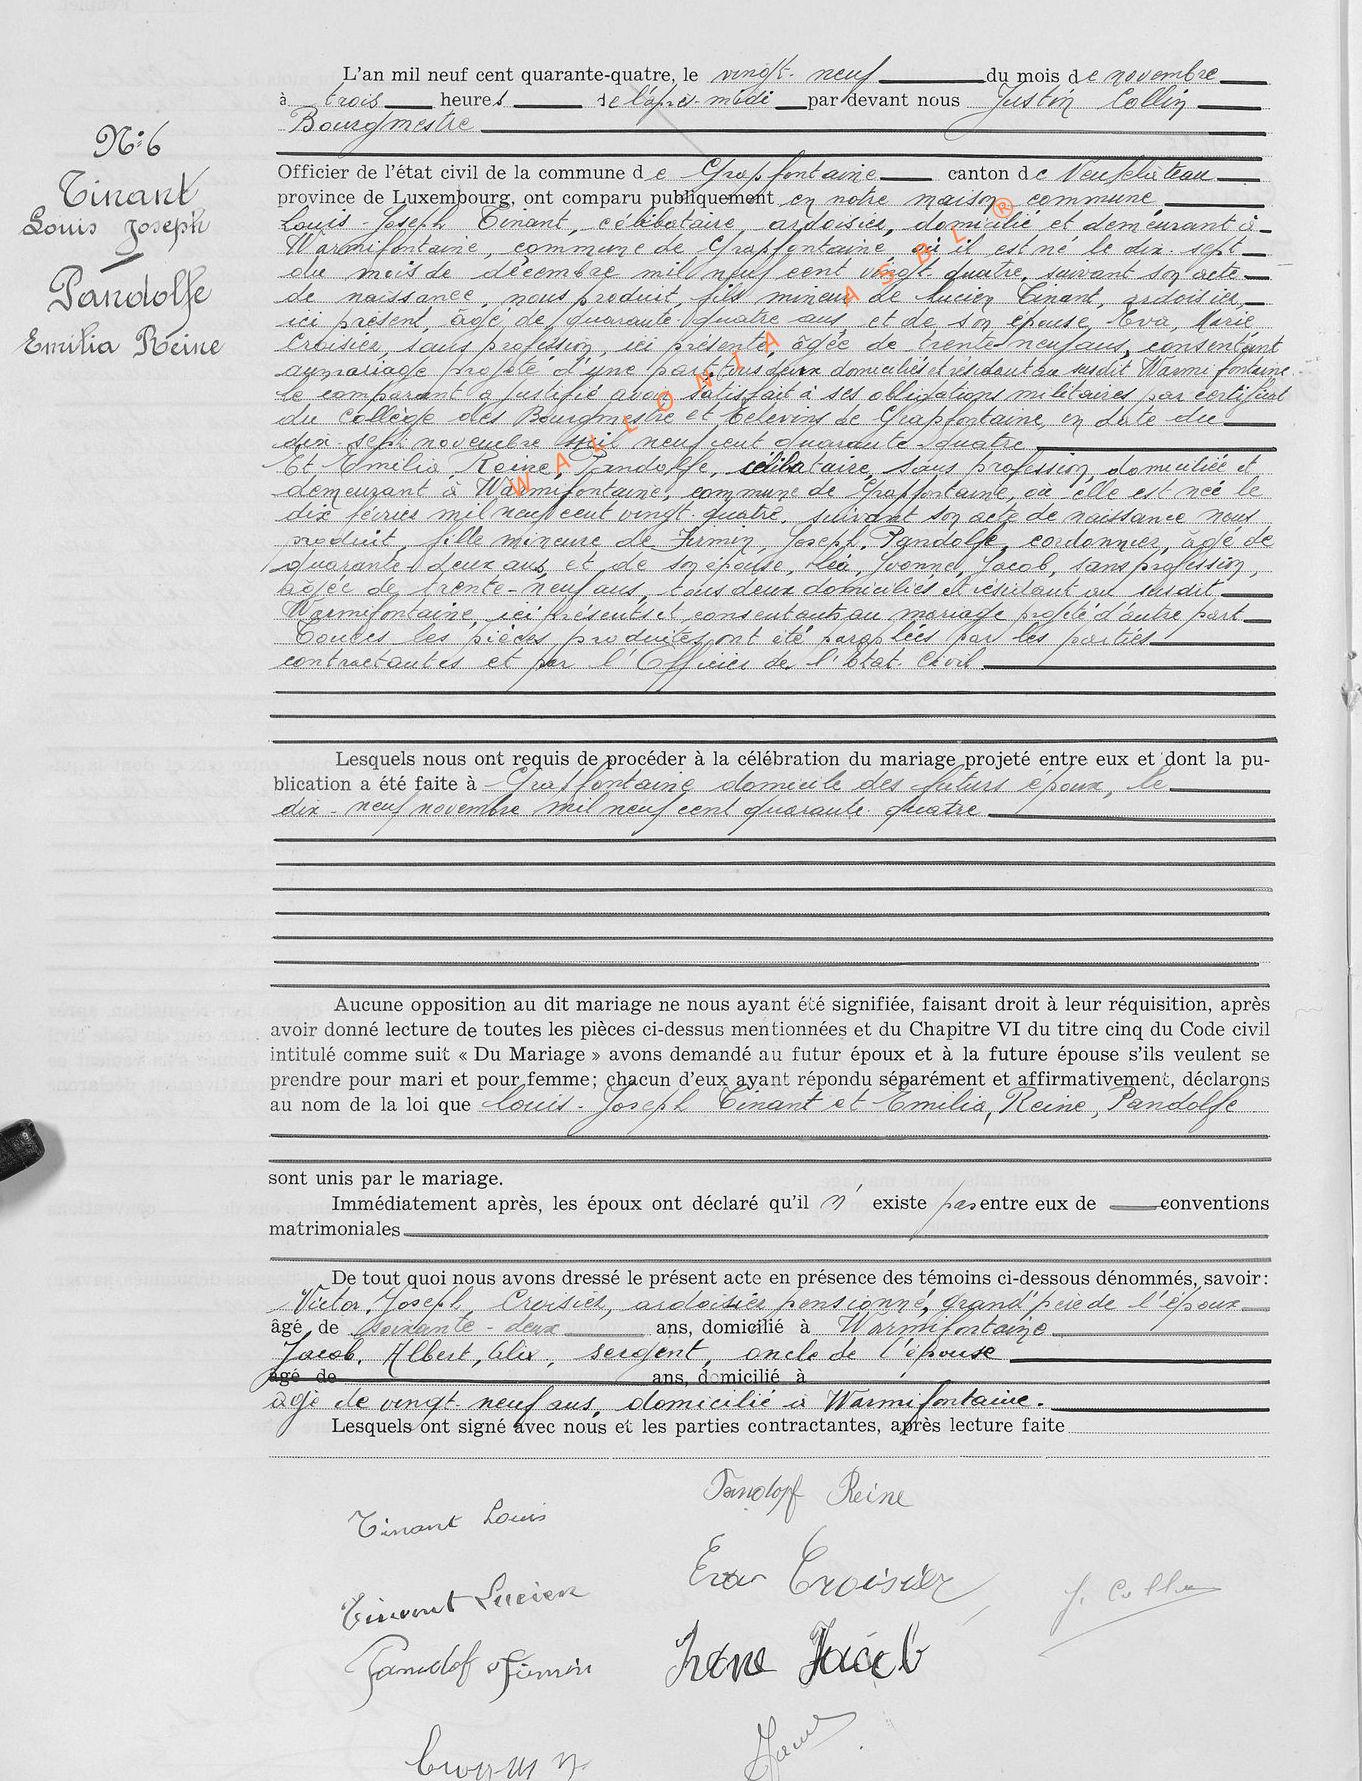 N° 6
Tinant
Louis Joseph
Pandolfe
Emilia Reine
L'an mil neuf cent quarante-quatre, le vingt-neuf du mois de novembre
à trois heures de l'après-midi par devant nous Justin Collin
Bourgmestre
Officier de l'état civil de la commune de Grapfontaine canton de Neufchâteau
province de Luxembourg, ont comparu publiquement en notre maison commune
Louis-Joseph Tinant, célibataire, ardoisier, domicilié et demeurant à
Warmifontaine, commune de Grapfontaine, où il est né le dix-sept
du mois de décembre mil neuf cent vingt-quatre, suivant son acte
de naissance, nous produit, fils mineur de Lucien Tinant, ardoisier,
ici présent, âgé de quarante-quatre ans, et de son épouse, Eva, Marie
Croisier, sans profession, ici présente, âgée de trente-neuf ans, consentant
au mariage projeté d'une part tous deux domiciliés et résidant au susdit Warmifontaine.
le comparant a justifié avoir satisfait à ses obligations militaires par certificat
du collège des Bourgmestre et Echevins de Grapfontaine, en date du
dix-sept novembre mil neuf cent quarante-quatre
Et Emilia Reine, Pandolfe, célibataire, sans profession, domiciliée et
demeurant à Warmifontaine, commune de Grapfontaine, où elle est née le
dix février mil neuf cent vingt-quatre, suivant son acte de naissance nous
produit, fille mineure de Firmin, Joseph, Pandolfe, cordonnier, âgé de
quarante-deux ans, et de son épouse, Léa, Yvonne, Jacob, sans profession,
âgée de trente-neuf ans, tous deux domiciliés et résidant au susdit
Warmifontaine, ici présents et consentants au mariage projeté d'autre part
Toutes les pièces produites ont été paraphées par les parties
contractantes et par l'Officier de l'Etat-Civil
Lesquels nous ont requis de procéder à la célébration du mariage projeté entre eux et dont la pu-
blication a été faite à Grapfontaine domicile des futurs époux, le
dix-neuf novembre mil neuf cent quarante-quatre
Aucune opposition au dit mariage ne nous ayant été signifiée, faisant droit à leur réquisition, après
avoir donné lecture de toutes les pièces ci-dessus mentionnées et du Chapitre VI du titre cinq du Code civil
intitulé comme suit « Du Mariage » avons demandé au futur époux et à la future épouse s'ils veulent se
prendre pour mari et pour femme; chacun d'eux ayant répondu séparément et affirmativement, déclarons
au nom de la loi que Louis-Joseph Tinant et Emilia, Reine, Pandolfe
sont unis par le mariage.
Immédiatement après, les époux ont déclaré qu'il n' existe pas entre eux de conventions
matrimoniales
De tout quoi nous avons dressé le présent acte en présence des témoins ci-dessous dénommés, savoir:
Victor, Joseph, Croisier, ardoisier pensionné, grand'père de l'époux
âgé de soixante-deux ans, domicilié à Warmifontaine
Jacob, Albert, Alix, sergent, oncle de l'épouse
âgé de ans, domicilié à
âgé de vingt-neuf ans, domicilié à Warmifontaine.
Lesquels ont signé avec nous et les parties contractantes, après lecture faite
Pandopf Reine
Tinant Louis
Eva Croisier
J. Collin
Tinant Lucien
Pandolf Firmin
Jacob
WALLONIA ASBL ®